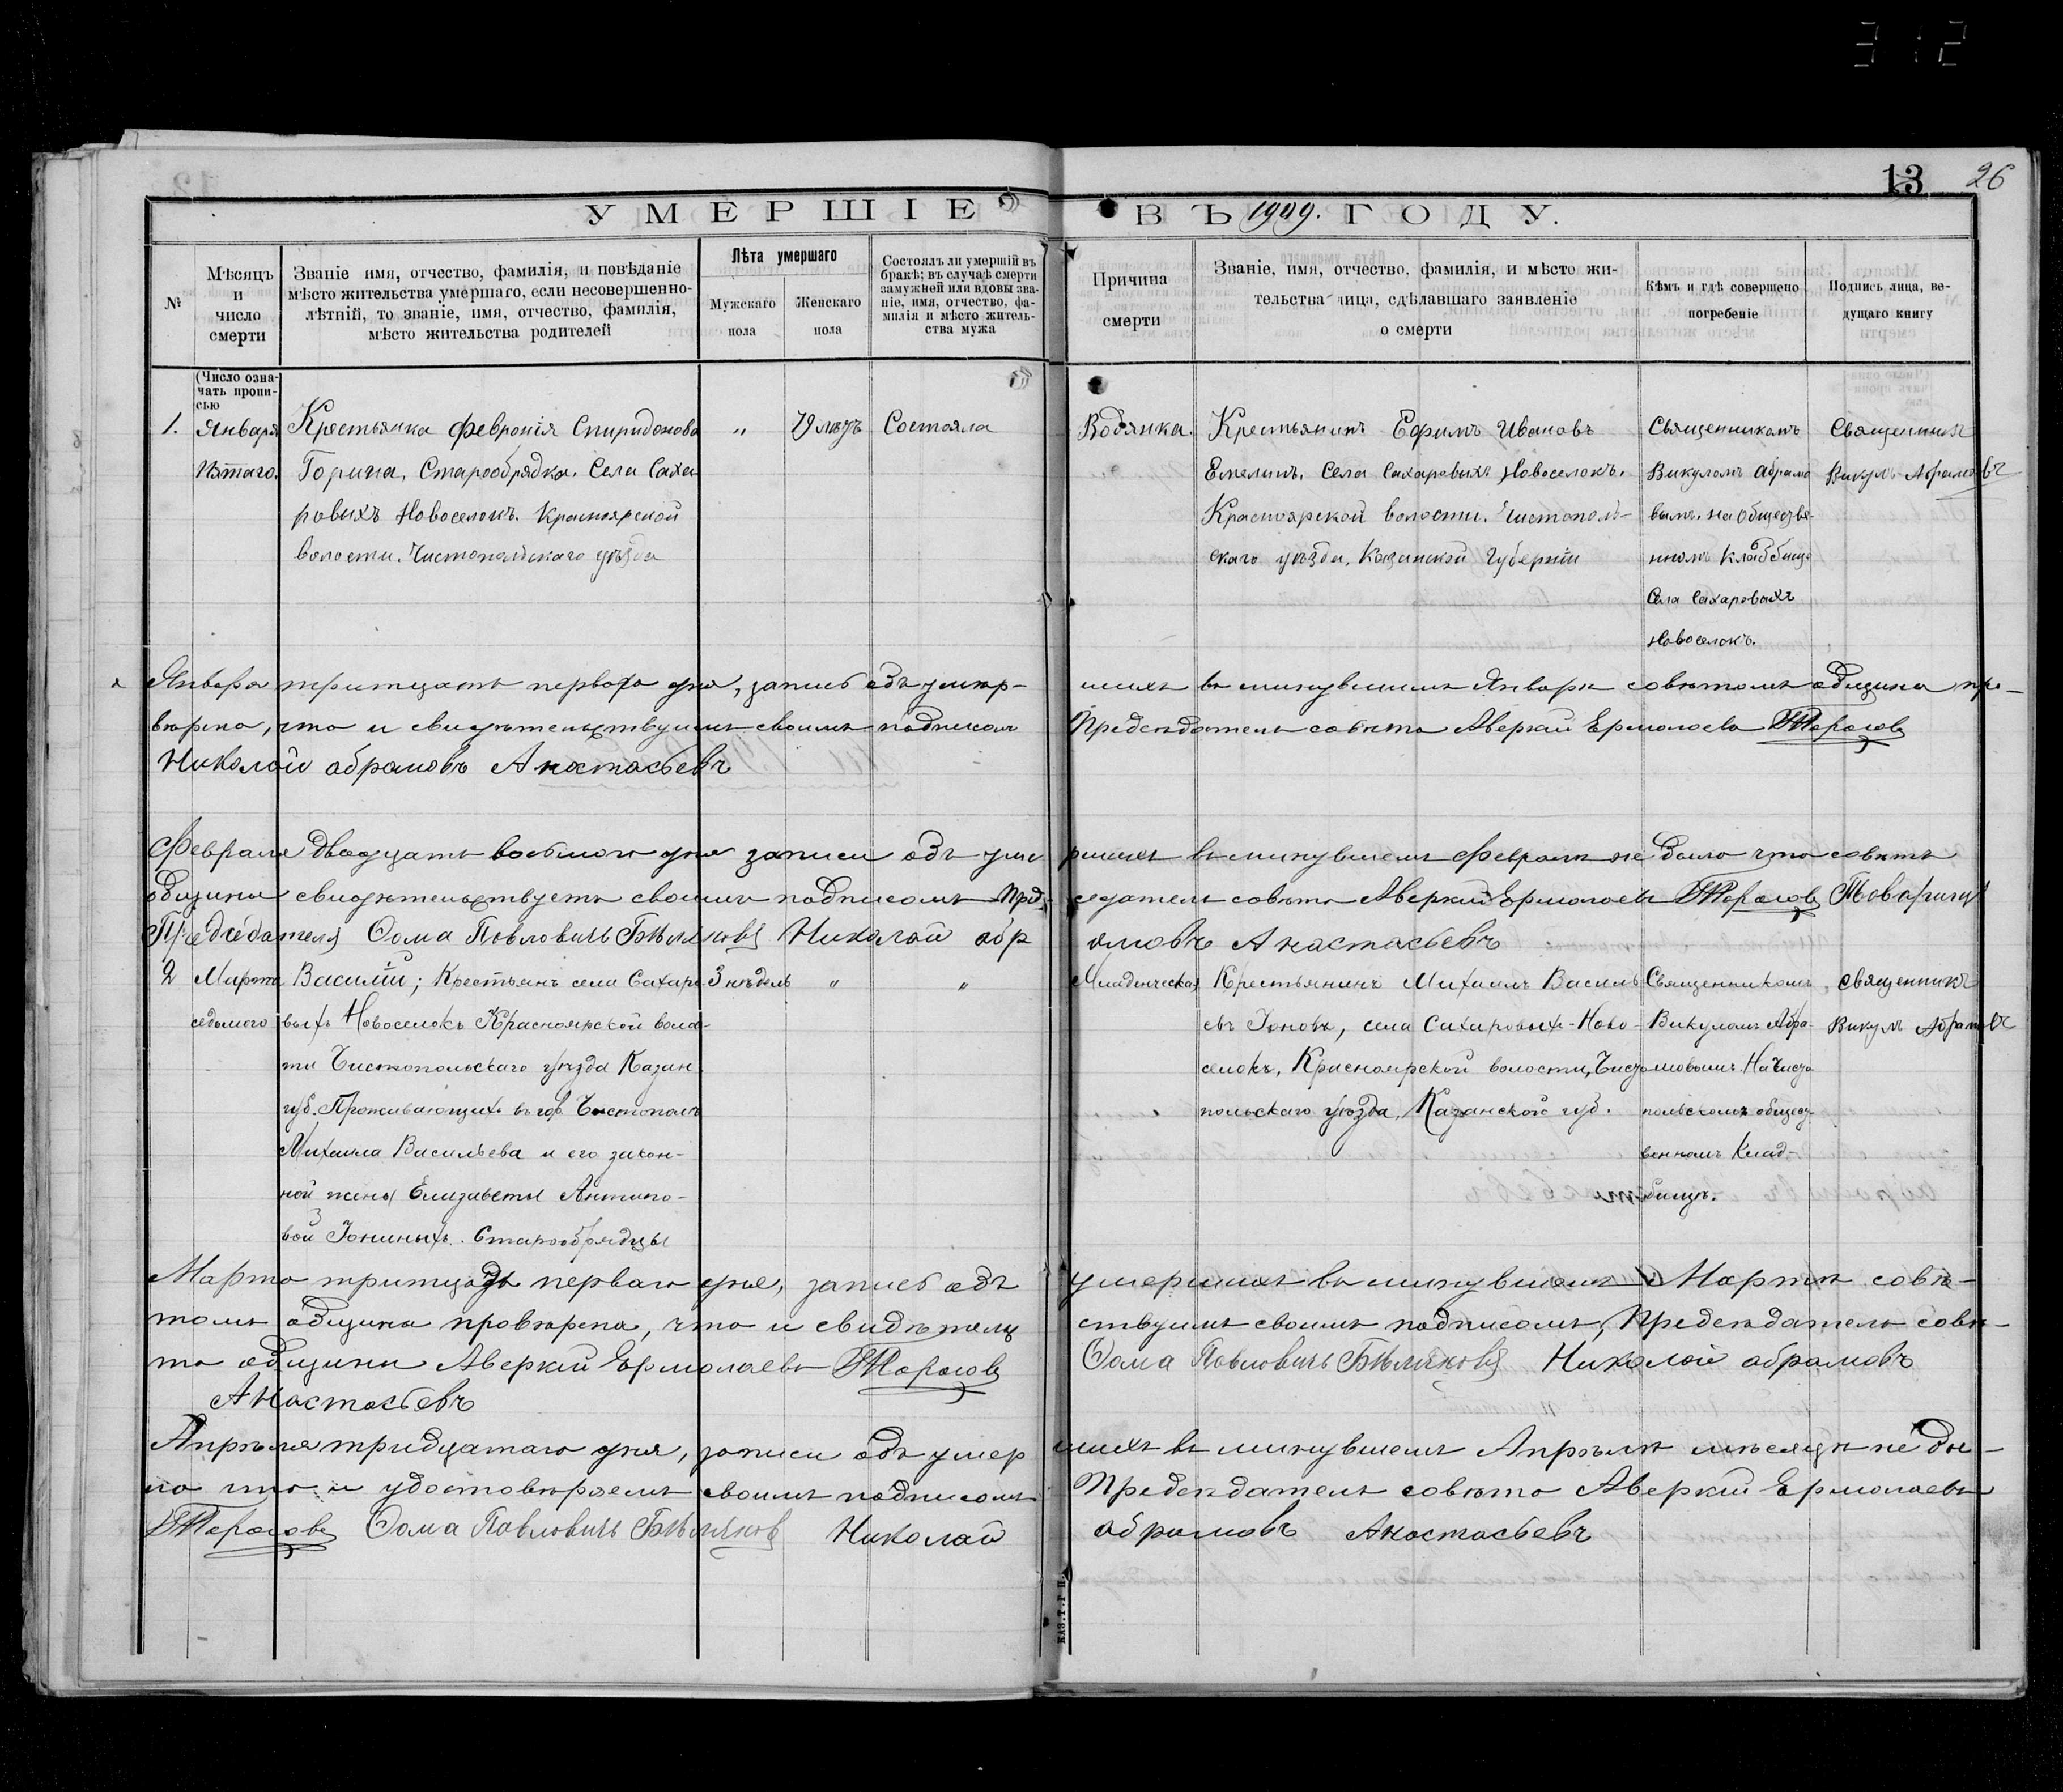 312
13 26
УМЕРШІЕ ВЪ 1909. ГОДУ.
№
Мѣсяцъ
и
число
смерти
Званіе имя, отчество, фамилія, и повѣданіе
мѣсто жительства умершаго, если несовершенно-
лѣтній, то званіе, имя, отчество, фамилія,
мѣсто жительства родителей
Лѣта умершаго
Мужскаго
пола
Женскаго
пола
Состоялъ ли умершій въ
бракѣ; въ случаѣ смерти
замужней или вдовы зва-
ніе, имя, отчество, фа-
милія и мѣсто житель-
ства мужа
Причина
смерти
Званіе, имя, отчество, фамилія, и мѣсто жи-
тельства лица, сдѣлавшаго заявленіе
о смерти
Кѣмъ и гдѣ совершено
погребеніе
Подпись лица, ве-
дущаго книгу
(Число озна-
чать пропи-
сью
1.
Января
Пятаго.
Крестьянка Февронія Спиридонова
Горина, Старообрядка. Села Саха-
ровыхъ Новоселокъ. Красноярской
волости. Чистопольскаго уѣзда
"
79 лѣтъ
Состояла
Водянка.
Крестьянинъ Ефимъ Ивановъ
Емелинъ. Села Сахаровыхъ Новоселокъ.
Красноярской волости. Чистополь-
скаго уѣзда, Казанской Губерніи
Священникомъ
Викуломъ Абрамо
вымъ. на Обществе-
нномъ Кладбищѣ
Села Сахаровыхъ
Новоселокъ.
Священникъ
Викулъ Абрамовъ
Января тритцать перваго дня, запись объ умер-
шихъ въ минувшемъ Январѣ совѣтомъ общины про-
вѣрена, что и свидѣтельствуемъ своимъ подписом
Председатель совѣта Аверкій Ермолаевъ
Николай абрамовъ Анастасьевъ
Февраля двадцать восьмого дня записи объ уме
ршихъ въ минувшемъ Февралѣ не было что совѣтъ
общины свидѣтельствуетъ своимъ подписомъ Пред
седатель совѣта Аверкій Ермолаевъ Товарищъ
Председателя Ѳома Павловичь Бѣляковъ Николай абр
амовъ Анастасьевъ
2
Марта
седьмого
Василій; Крестьянъ села Сахаро
выхъ Новоселокъ Красноярской волос-
ти Чистопольскаго уѣзда Казан.
губ. Проживающихъ въ гор. Чистополѣ
Михаила Васильева и его закон-
ной жены Елизаветы Антипо-
вой Іониныхъ. Старообрядцы
3 недѣль
"
"
Младенческая
Крестьянинъ Михаилъ Василь
евъ Іоновъ, села Сахаровыхъ-Ново-
селокъ, Красноярской волости, Чисто
польскаго уѣзда, Казанской губ.
Священникомъ
Викуломъ Абра-
мовымъ. На Чисто
польскомъ общест
венномъ Клад-
бищѣ.
Священникъ
Викулъ Абрамовъ
Марта тритцать перваго дня, запись объ
умершихъ въ минувшемъ Мартѣ совѣ-
томъ общины провѣрена, что и свидѣтель
ствуемъ своимъ подписомъ, Председатель совѣ-
та общины Аверкій Ермолаевъ
Ѳома Павловичь Бѣляковъ Николай абрамовъ
Анастасьевъ
Апрѣля тридцатаго дня, записи объ умер
шихъ въ минувшемъ Апрѣлѣ мѣсяцѣ не бы-
ло что и удостовѣряемъ своимъ подписомъ
Председатель совѣта Аверкій Ермолаевъ
Ѳома Павловичь Бѣляковъ Николай
абрамовъ Анастасьевъ
КАЗ.Т.Г.П.